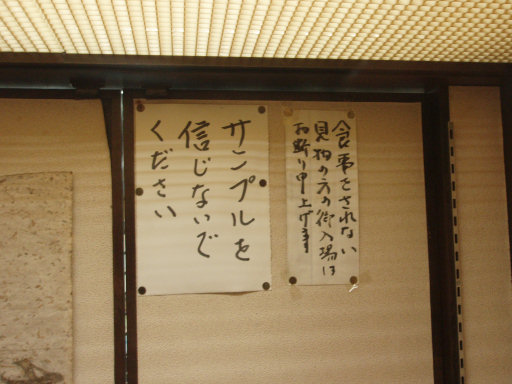 食事をされない
見物の方の御入場は
お断り申上げます
サンプルを
信じないで
ください